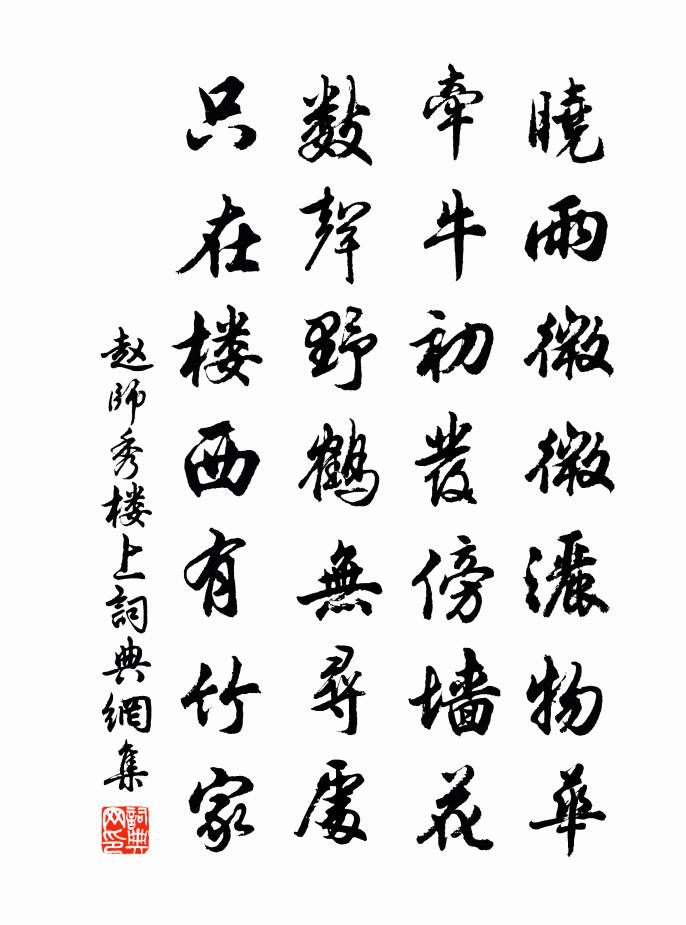 曉雨微微灑物華
牽牛初發傍墙花
数聲野鶴無尋處
只在楼西有竹家
赵師秀楼上詞典網集
詞典網印